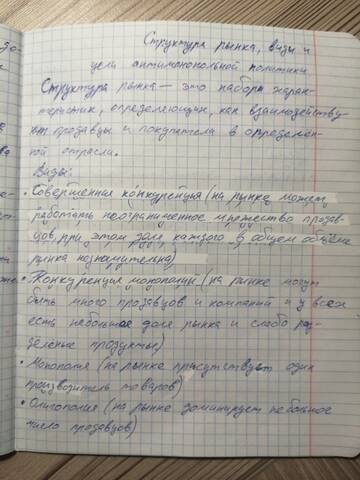 Структура рынка, виды и
цели антимонопольной политики
Структура рынка — это набор харак-
теристик, определяющих, как взаимодейству-
ют продавцы и покупатели в определен-
ной отрасли.
Виды:
• Совершенная конкуренция (на рынке может
работать неограниченное множество продав-
цов, при этом доля каждого в общем объёме
рынка незначительна)
• Конкуренция монополий (на рынке могут
быть много продавцов и компаний и у всех
есть небольшая доля рынка и слабо раз-
деленые продукты)
• Монополия (на рынке присутствует один
производитель товаров)
• Олигополия (на рынке доминирует небольшое
число продавцов)